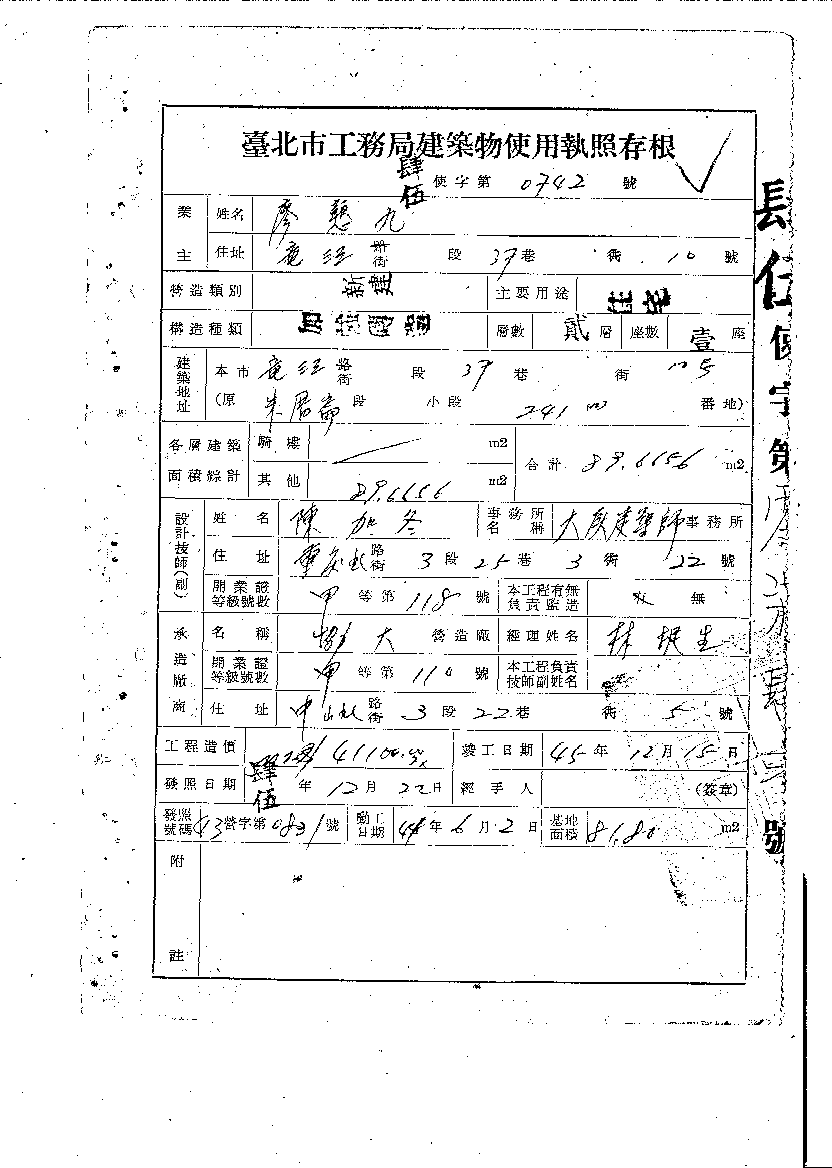 臺北市工務局建築物使用執照存根
肆伍 使字第 0742 號
業主 姓名 廖 九
住址 龍江 路街 段 37 巷 衖 10 號
營造類別 新建 主要用途 住宅
構造種類 層數 貳 層 座數 壹 座
建築地址 本市 龍江 路街 段 37 巷 街
(原 朱厝崙 段 小段 241 番地)
各層建築面積綜計 騎樓 m2 合計 89.6656 m2
其他 89.6656 m2
設計技師(副) 姓名 陳加冬 事務所名稱 大 建築師 事務所
住址 重慶北 路街 3 段 25 巷 3 衖 22 號
開業證等級號數 甲 等第 118 號 本工程有無負責監造 無
承造廠商 名稱 大 營造廠 經理姓名 林 生
開業證等級號數 甲 等第 110 號 本工程負責技師副姓名
住址 中山北 路街 3 段 22 巷 衖 5 號
工程造價 41100.00 竣工日期 45 年 12 月 15 日
發照日期 肆伍 年 12 月 22 日 經手人 (簽章)
發照號碼 43 營字第 0831 號 動工日期 44 年 6 月 2 日 基地面積 81.80 m2
附註
伍使字第
號